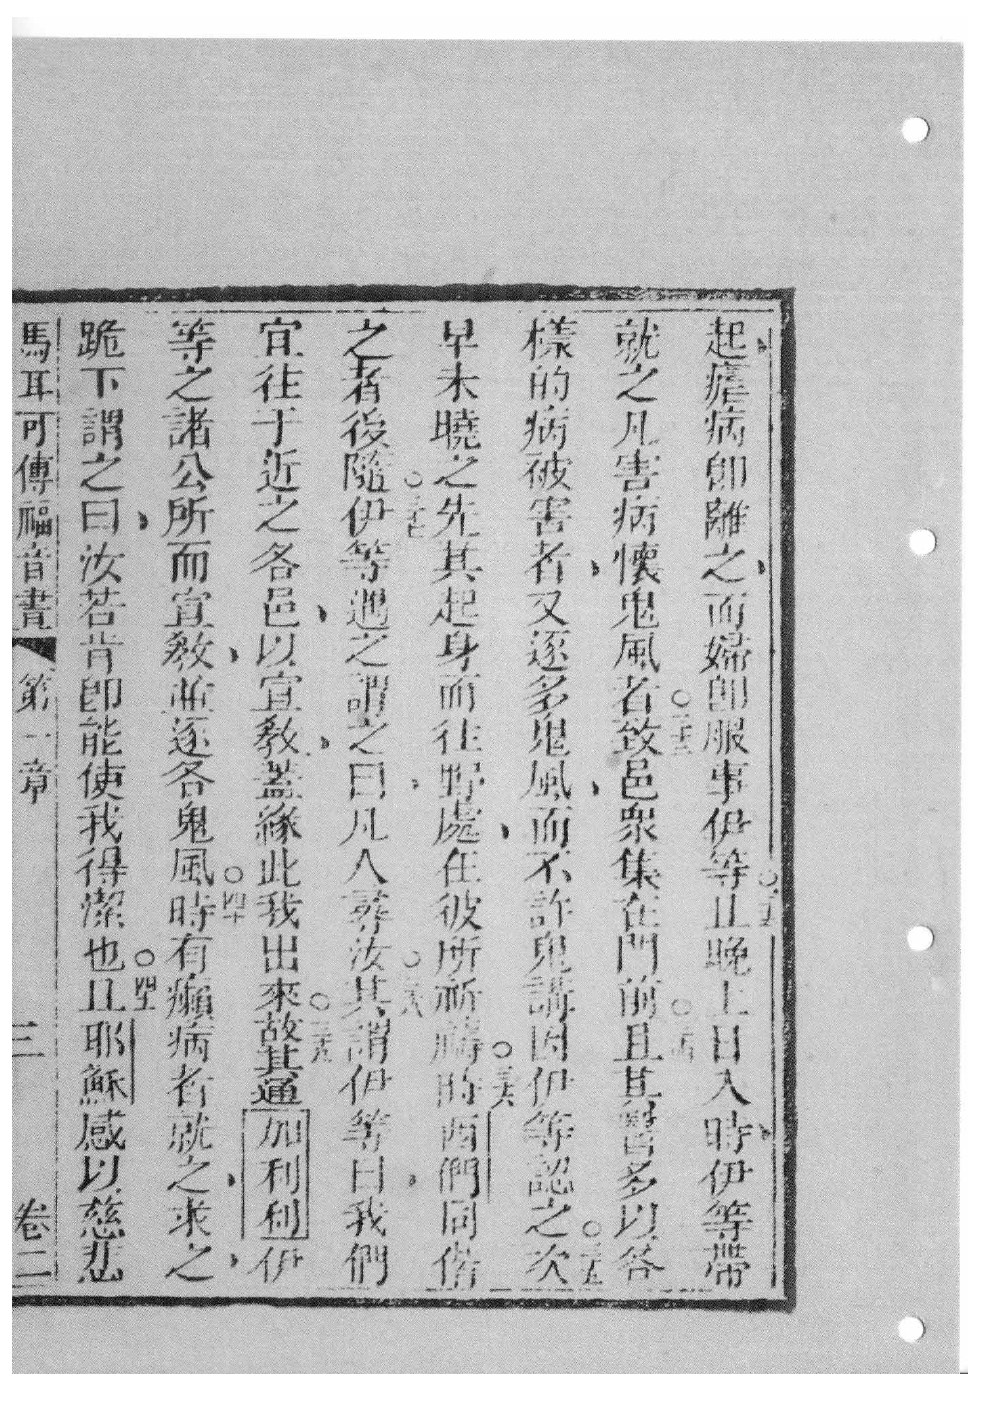 起瘧病卽離之而婦卽服事伊等止晚上日入時伊等帶
三十三
就之凡害病懷鬼風者致邑衆集在門前且其醫多以各
三十四
樣的病被害者又逐多鬼風而不許鬼講因伊等認之次
三十五
早未曉之先其起身而往野處在彼所祈禱時西們同偕
三十六
之者後隨伊等遇之謂之曰凡人尋汝其謂伊等曰我們
三十七
三十八
宜往于近之各邑以宣教蓋緣此我出來故其通加利利伊
三十九
等之諸公所而宣教並逐各鬼風時有癩病者就之求之
四十
跪下謂之曰汝若肯卽能使我得潔也且耶穌感以慈悲
四一
馬耳可傳福音書 第一章 三 卷二